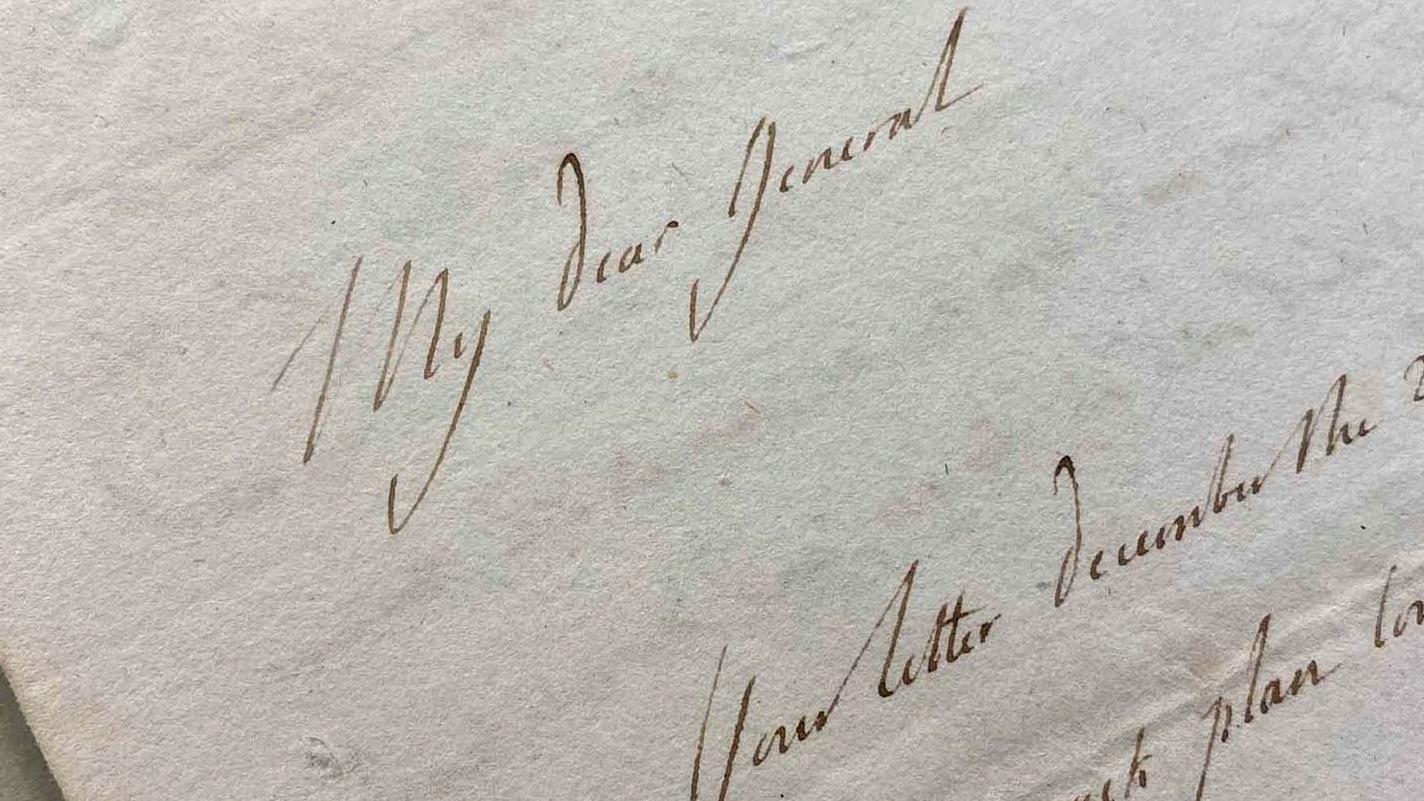 My dear General
Your letter december the
plan